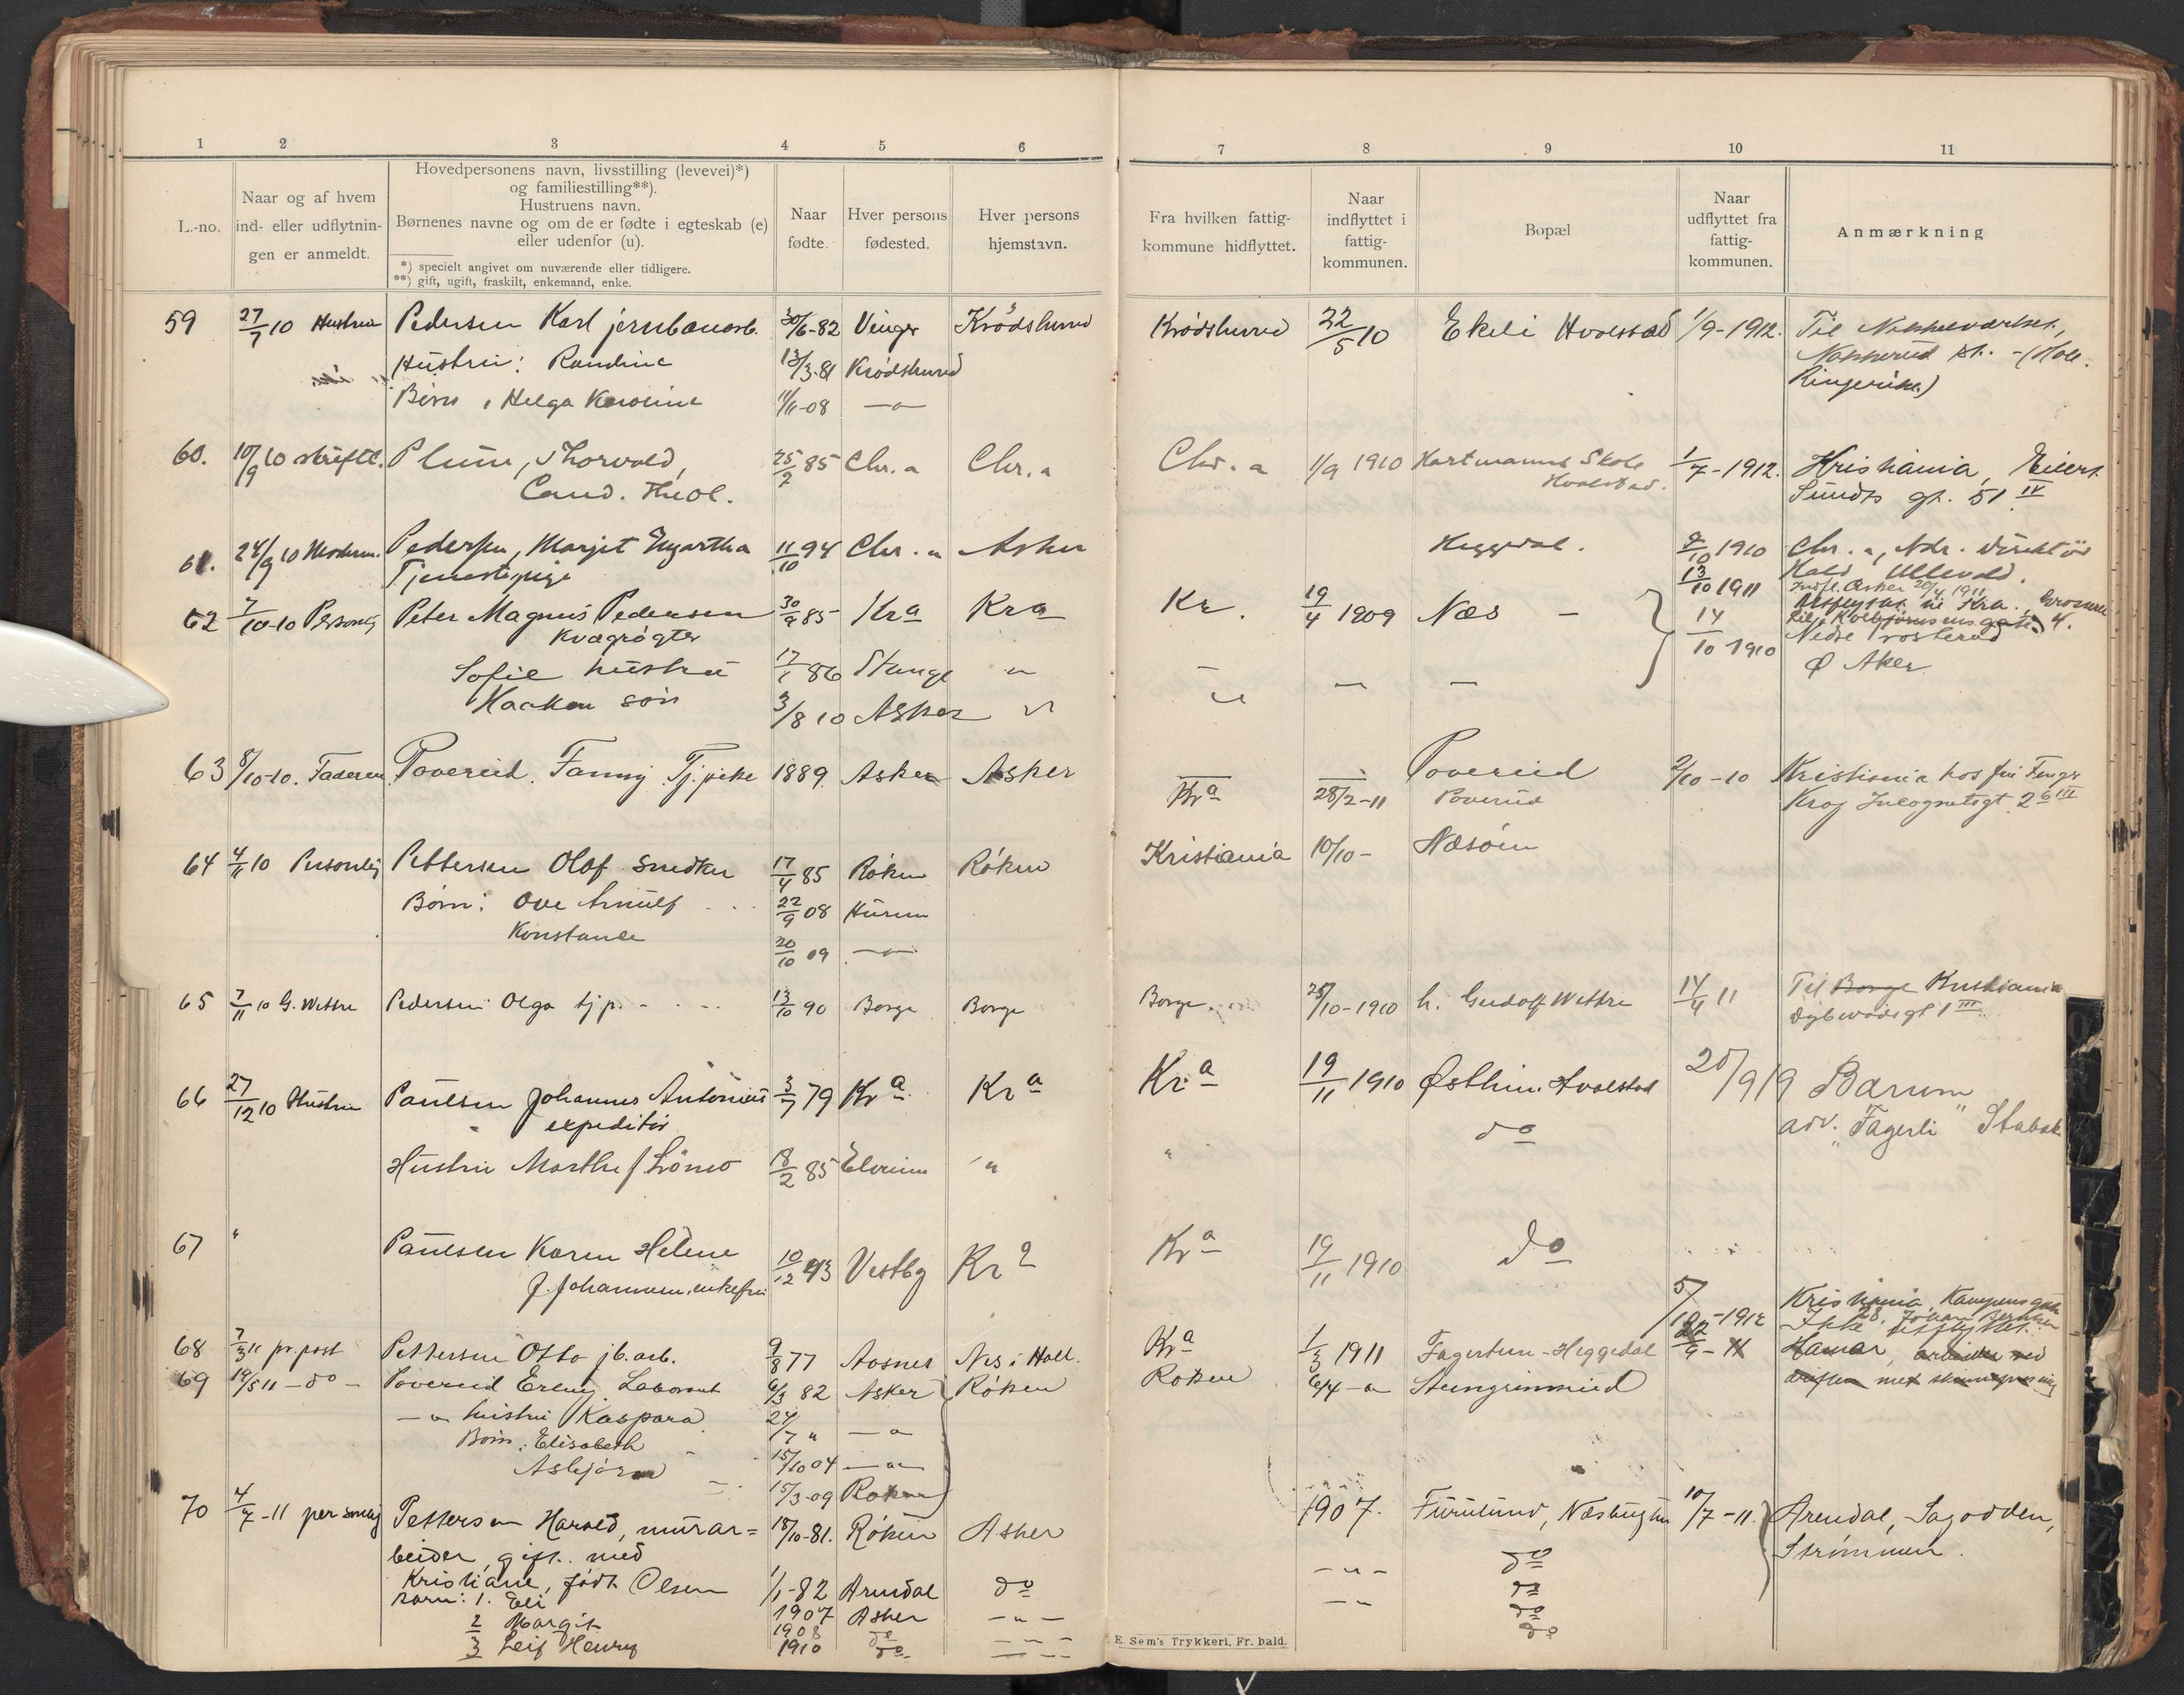 1 2 3 4 5 6 7 8 9 10 11
L.-no.
Naar og af hvem
ind- eller udflytnin-
gen er anmeldt.
Hovedpersonens navn, livsstilling (levevei)*)
og familiestilling**).
Hustruens navn.
Børnenes navne og om de er fødte i egteskab (e)
eller udenfor (u).
*) specielt angivet om nuværende eller tidligere.
**) gift, ugift, fraskilt, enkemand, enke.
Naar
fødte.
Hver persons
fødested.
Hver persons
hjemstavn.
Fra hvilken fattig-
kommune hidflyttet.
Naar
indflyttet i
fattig-
kommunen.
Bopæl
Naar
udflyttet fra
fattig-
kommunen.
Anmærkning
59 27/7 10 Hustru Pedersen Karl jernbanearb. 30/6-82 Vinger Krødsherred Krødsherred 22/5 10 Ekeli Hvalstad 1/9-1912. Til
Hustru: Randine 13/3-81 Krødsherred Nakkerud st. - (Hole
Børn, Helga Karoline 11/11-08 —"— Ringerike)
60. 10/9 10 skriftl. Plum, Thorvald, 25/2 85 Chr.a Chr.a Chr.a 1/9 1910 Hartmanns Skole 1/7-1912. Kristiania, Eilert
Cand. Theol. Hvalstad. Sundts gt. 51 IV
61. 24/9 10 Moderen. Pedersen, Margit 11/10 94 Chr.a Asker Heggedal. 2/10 1910 Chr.a, Adr. Direktør
Tjenestepige 13/10 1911 Hald Ullevold.
Indfl. Asker 20/4 1911
62 7/10-10 Personlig Peter Magnus Pedersen 30/9 85 Kra Kra Kr. 19/4 1909 Næs — 14/10 1910 Udflyttet til Kra.
Kvægrøgter Nedre
Sofie hustru 17/1 86 Stange " — — — Ø Aker
Haakon søn 3/8 10 Asker " "
63 8/10-10. Faderen Poverud. Fanny Tj.pike 1889. Asker Asker — — Poverud 2/10-10 Kristiania hos fru Fenger
Kra 28/2-11 Poverud Krog Incognitogt. 26 III
64 4/11 10 Personlig Pettersen Olaf Snedker 17/4 85 Røken Røken Kristiania 10/10- Næsøen
Børn: Ove Arnulf 22/9 08 Hurum
Konstanse 20/10 09 —"—
65 7/11 10 G. Wettre Pedersen Olga tjp. - 13/10 90 Borge Borge Borge 25/10-1910 h. Gudolf Wettre 14/4 11 Til Borge Kristiania
Dybwadsgt 1 III
66 27/12 10 Hustru Paulsen Johannes Antonius 3/7 79 Kra Kra Kra 19/11 1910 Østhim Hvalstad 20/9 19 Bærum
expeditør do adr. "Fagerli" Stabæk
Hustru Marthe f. Lönmo 18/2 85 Elverum " "
67 " Paulsen Karen Helene 10/12 43 Vestby Kra Kra 19/11 1910 do
f. Johannesen, enkefru
68 7/3 11 pr. post Pettersen Otto jb. arb. 9/8 77 Aasnes Nes i Hall. Kra 1/3 1911 Fagertun - Heggedal 5/10-1912 Kristiania, Kampensgate
28, Johan
Ikke udflyttet.
69 19/5 11 —do— Poverud Erling, Laborant 6/3 82 Asker Røken Røken 6/4-" Steingrimmerud Hamar, arbeider ved
—"— hustru Kaspara 24/7 " —"— driften med
Børn: Elisabeth 15/10 04 —"—
Asbjørn 15/3-09 Røken
70 4/7-11 personlig Pettersen Harald, murar= 18/10-81. Røken Asker 1907. Furulund, Næsbugten 10/7-11. Arendal, Sagodden,
beider, gift. med —"— do Strømmen.
Kristiane, født Olsen 1/1-82 Arendal do —"— do
barn: 1. Eli 1907 Asker —"— do
2 Margit 1908 do —"— do
3 Leif Henry 1910 do —"—
E. Sem's Trykkeri, Fr.hald.